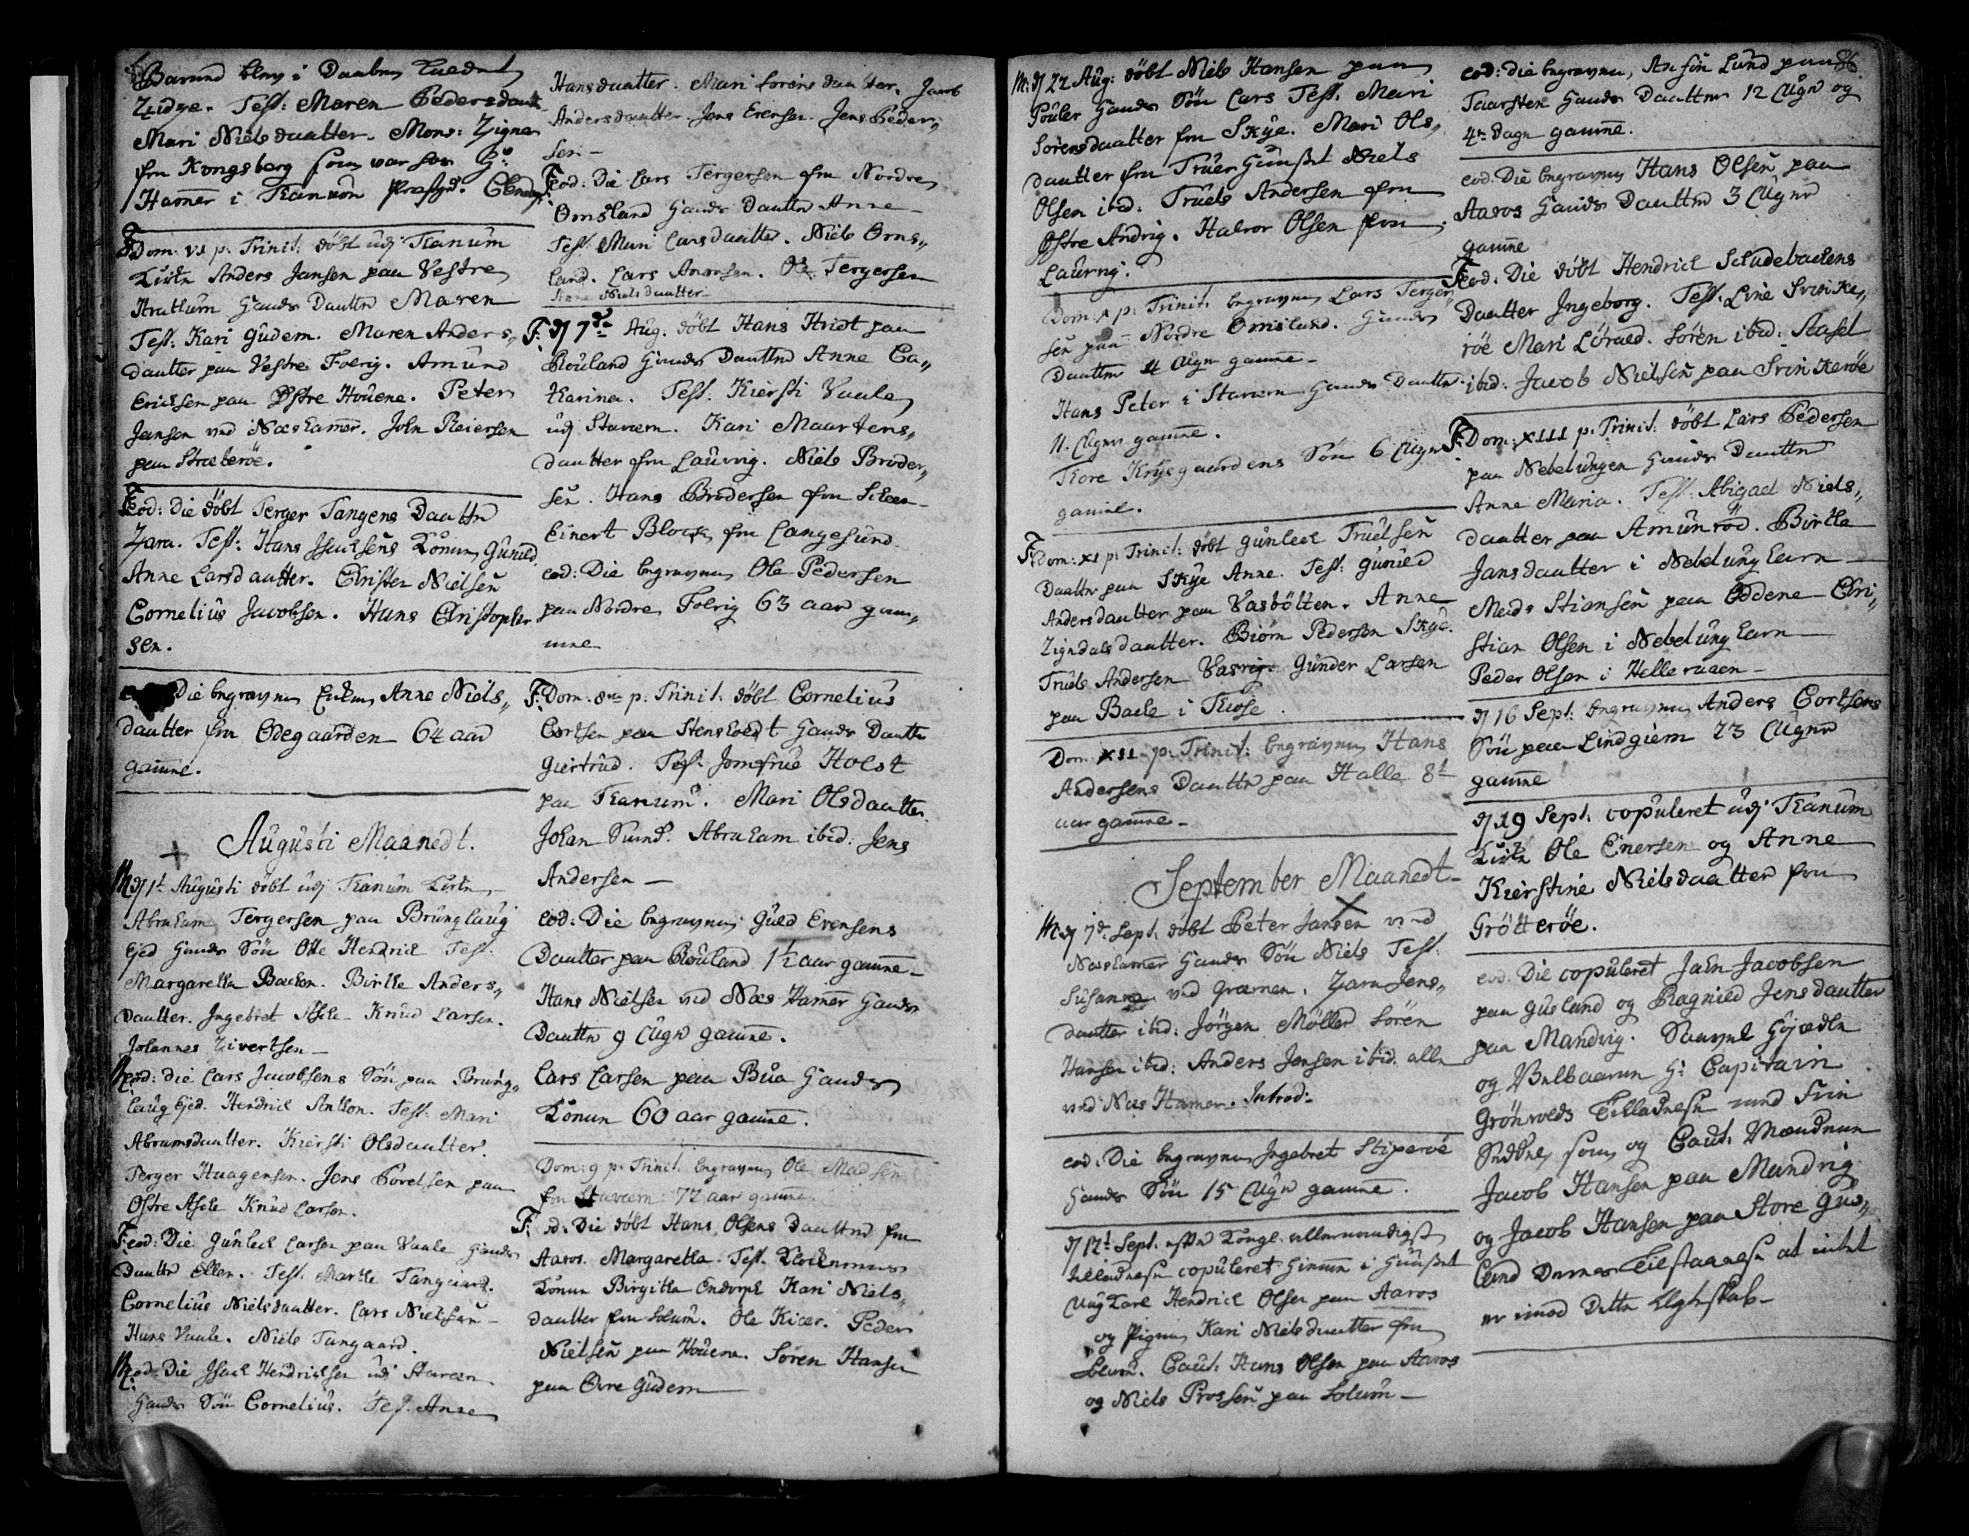 Barnet blev i Daaben kaldet
Zidze. Test: Maren Pedersdaatt
Mari Nielsdaatter. Mons: Zigne
fra Kongsberg som var hos Hr
Hamer i Tanum
Dom: VI p: Trinit: döbt udj Tanum
Kirke Anders Jansen paa Vestre
Hratlum hands Daatter Maren
Test: Kari Gudem. Maren Anders„
daatter paa Vestre Foerig. Amund
Ericksen paa Östre Houene. Peter
Jansen ved Næshamer. John Reiersen
paa Stræteröe.
Eod: Die döbt Terger Tangens Daatter
Zara. Test: Hans Isachsens Konne Gunild
Anne Larsdaatter. Christen Nielsen
Cornelius Jacobsen. Hans Christopher
sen.
Die begraven Enken Anne Niels„
daatter fra Ödegaarden 64 aar
gamle.
Augusti Maanedt.
M: dj 1t Augusti döbt udj Tanum Kirke
Abraham Tergersen paa Brunglaug
Ejed hands Sön Otte Hendrick Test:
Margaretha Backen. Birthe Anders„
daatter. Ingebret Askle Knud Larsen.
Johannes Zivertsen
M: eod: die Lars Jacobsens Sön paa Brung„
laug Ejed. Hendrich Anthon. Test: Mari
Abramsdaatter. Kiersti Olsdaatter.
Terger Haagensen. Jens Povelsen paa
Östre Askle Knud Larsen.
F: eod: Die Gunlech Larsen paa Vaale hands
Daatter Ellen. Test: Marthe Tangaard.
Cornelius Nielsdaatter. Lars Nielsen
Hans Vaale. Niels Tangaard.
M: eod: Die Isach Hendrichsen udj Staværn
hands Sön Cornelius. Test: Anne
Hansdaatter. Mari Sörensdaatter. Jacob
Andersdaatter. Jens Evensen. Jens Peder„
sen
F: eod: Die Lars Tergersen fra Nordre
Omsland hands Daatter Anne
Test: Mari Larsdaatter. Niels Oms„
land. Lars Anorsen. Ole Tergersen
Anne Nielsdaatter
F: dj 7de Aug: döbt Hans Hvidt paa
Rouland hands Daatter Anne Ca„
tharina. Test: Kiersti Vaale
udj Staværn. Kari Maartens„
daatter fra Laurvig. Niels Broder„
sen. Hans Brodersen fra Scheen
Einert Block fra Langesund
eod: Die begraven Ole Pedersen
paa Nordre Foerig 63 aar gam„
mel
F: Dom: 8va p: Trinit: döbt Cornelius
Cortsen paa Stensholdt hands Daatter
Giertrud. Test: Jomfrue Holst
paa Tanum. Mari Olsdaatter.
Johan Sund. Abraham ibid: Jens
Andersen
eod: Die begraven Guld Evensens
Daatter paa Rouland 1½ aar gamle
Hans Nielsen ved Næs Hamer hands
Daatter 9 Uger gamle.
Lars Larsen paa Bua hands
Konne 60 aar gamle.
Dom: 9 p: Trinit: begraven Ole Madsen
fra Staværn 72 aar gamle.
F: eod: Die döbt Hans Olsens Daatter fra
Aaros. Margaretha. Test:
Konne Birgitta Kari Niels„
daatter fra Solum. Ole Kicer. Peder
Nielsen paa Houene. Sören Hansen
paa Övre Gudem
M: dj 22 Aug: döbt Niels Hansen paa
Pouler hands Sön Lars Test: Mari
Sörensdaatter fra Skye. Mari Ols„
daatter fra Truer Niels
Olsen ibid. Truels Andersen fra
Östre Andrig. Halvor Olsen fra
Laurvig.
Dom: X p: Trinit: begraven Lars Terger„
sen paa Nordre Omsland. hands
Daatter 4 Uger gamle
Hans Peter i Stavern hands Daatter
11. Uger gamle.
Tore Krysgaardens Sön 6 Uger
gamle.
F: Dom: XI p: Trinit: döbt Gunlech Truelsen
Daatter paa Skye Anne. Test: Gunild
Andersdaatter paa Vasbötten. Anne
Zigndalsdaatter. Biörn Pedersen Skye.
Truels Andersen Vasvig. Gunder Larsen
paa Bache i Kiose.
Dom: XII p: Trinit: begraven Hans
Andersens Daatter paa Halle 8t
aar gamle
September Maanedt
M: dj 7de Sept: döbt Peter Jansen ved
Næshamer hands Sön Niels Test:
Susanna ved Grarnen. Zara Jens„
daatter ibid: Jörgen Möller Sören
Hansen ibid: Anders Jensen ibid. alle
ved Næs Hamer. Introd:
eod: Die begraven Ingebret Stiperöe
hands Sön 15 Uger gamle.
dj 12t Sept. efter Kongl. allernaadigst
tilladelse copuleret hiemme i Huuset
Ung Karl Hendrick Olsen paa Aaros
og Pigen Kari Nielsdaatter fra
Solum. Caut: Hans Olsen paa Aaros
og Niels Prossen paa Solum
86.
eod: die begraven, Ansön Lund paa
Taarsten hands Daatter 12 Uger og
4re dage gamle.
eod: Die begraven Hans Olsen paa
Aaros hands Daatter 3 Uger
gamle
F: eod: Die döbt Hendrick Schudebackens
Daatter Ingeborg. Test: Line Svinke„
röe Mari Löraed. Sören ibid: Aasel
ibid: Jacob Nielsen paa Svinkeröe
F: Dom: XIII p: Trinit: döbt Lars Pedersen
paa Nebelungen hands Daatter
Anne Maria. Test: Abigael Niels„
daatter paa Amunröd. Birthe
Jansdaatter i Nebelunghavn
Mads Stiansen paa Oddene Chri„
stian Olsen i Nebelunghavn
Peder Olsen i Helleraaen
dj 16 Sept: begraven Anders Cortsens
Sön paa Lindgiem 23 Uger
gamle
dj 19 Sept: copuleret udj Tanum
Kirke Ole Enersen og Anne
Kierstine Nielsdaatter fra
Grötteröe.
eod: Die copuleret Jahn Jacobsen
paa Gusland og Ragnild Jensdaatter
paa Mandvig.
og Hr Capitain
Grönvolds Tilladelse med Sin
som og Caut: Mændene
Jacob Hansen paa Mandvig
og Jacob Hansen paa Store Gus„
land Deres Tilstaaelse at intet
er imod Dette Egteskab